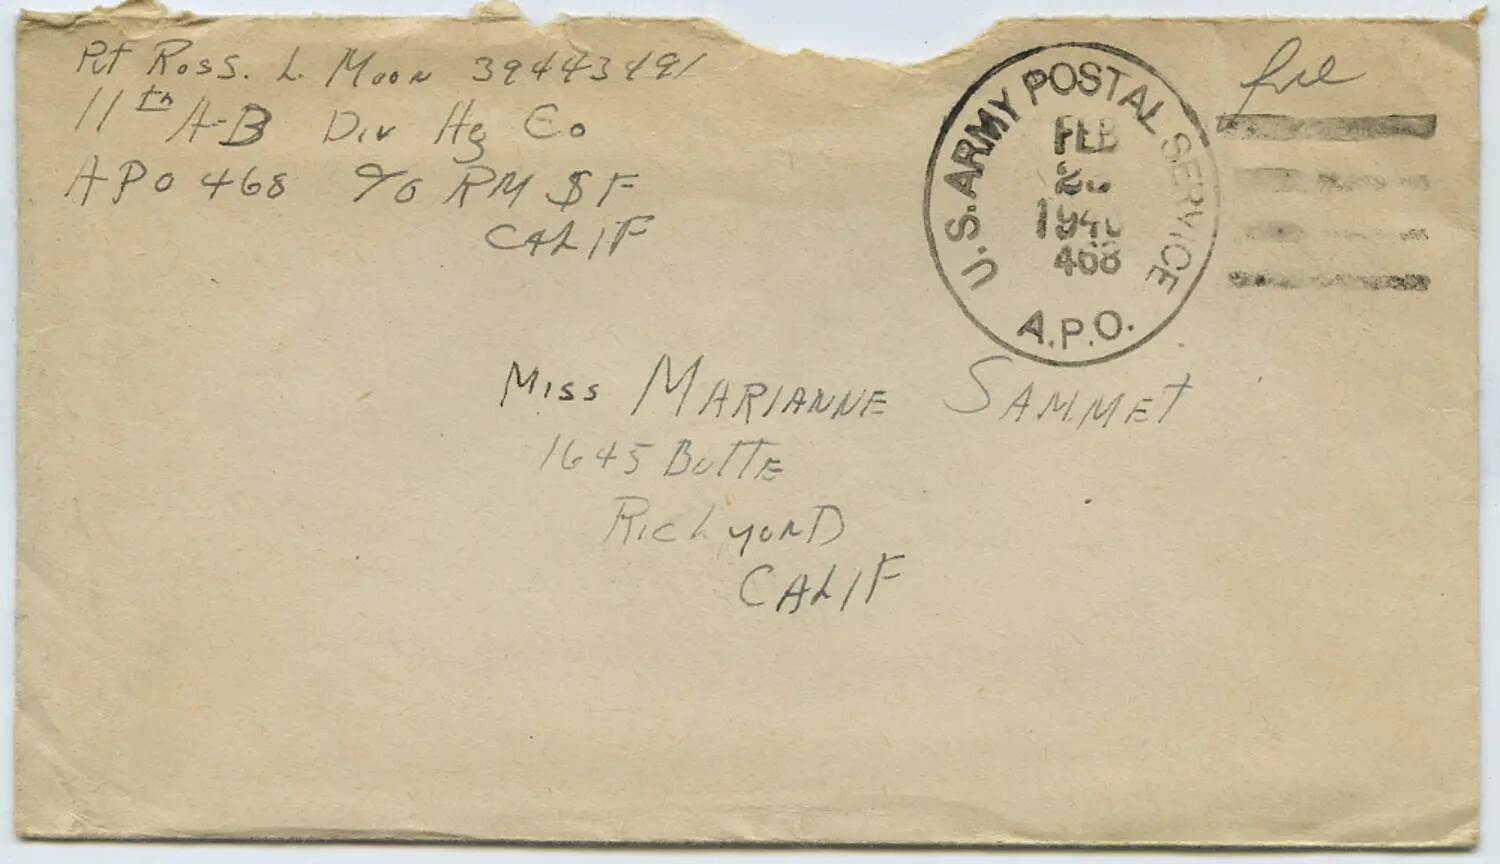 Pvt Ross. L. Moon 39443491
11th A-B Div Hq Co
APO 468 c/o PM $ F
CALIF
free
U.S. ARMY POSTAL SERVICE
FEB
1946
468
A.P.O.
Miss MARIANNE SAMMET
1645 Butte
RichmonD
CALIF